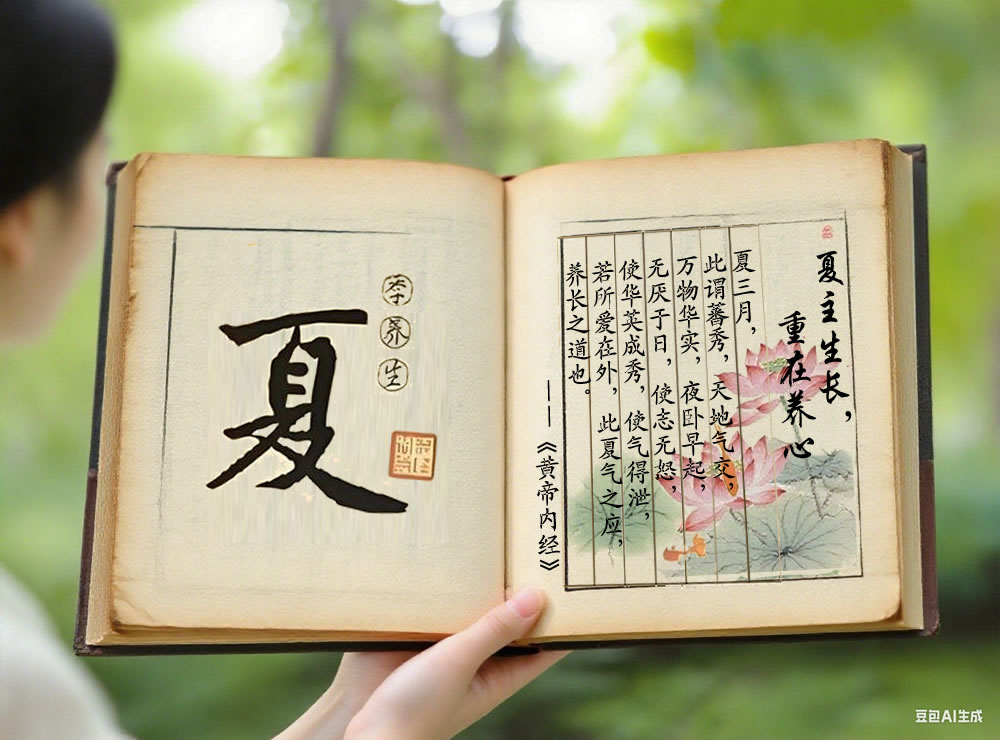 夏
季养生
夏主生长，
重在养心
夏三月，
此谓蕃秀，天地气交，
万物华实，夜卧早起，
无厌于日，使志无怒，
使华英成秀，使气得泄，
若所爱在外，此夏气之应，
养长之道也。
——《黄帝内经》
豆包AI生成